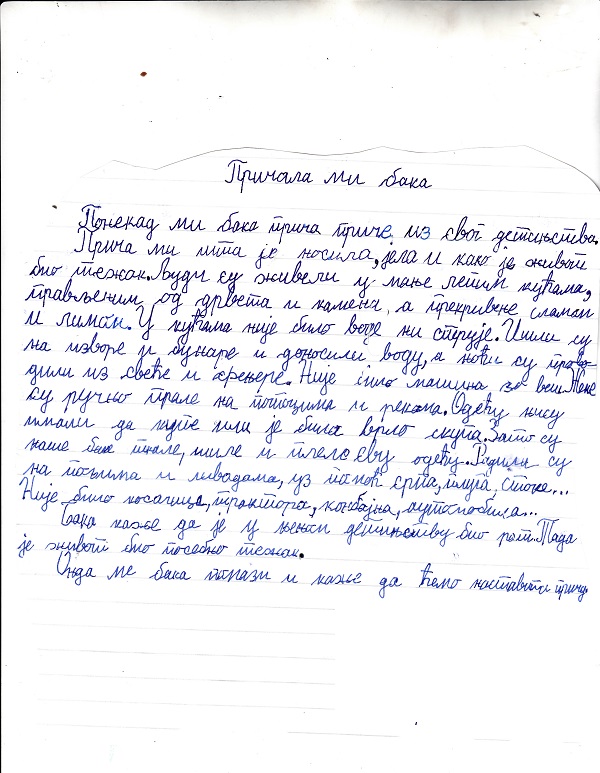 Причала ми бака
Понекад ми бака прича приче из свог детињства.
Прича ми шта је носила, јела и како је живот
био тежак. Људи су живели у мање лепим кућама,
прављеним од дрвета и камена, а прекривене сламом
и лимом. У кућама није било воде ни струје. Ишли су
на изворе и бунаре и доносили воду, а ноћи су прово-
дили из свеће и фењере. Није било машина за веш. Жене
су ручно прале на потоцима и рекама. Одећу нису
имали да купе или је била врло скупа. Зато су
наше баке ткале, шиле и плеле сву одећу. Радили су
на пољима и ливадама, уз помоћ српа, плуга, стоке...
Није било косачица, трактора, комбајна, аутомобила...
Бака каже да је у њеном детињству био рат. Тада
је живот био посебно тежак.
Онда ме бака помази и каже да ћемо наставити причу.